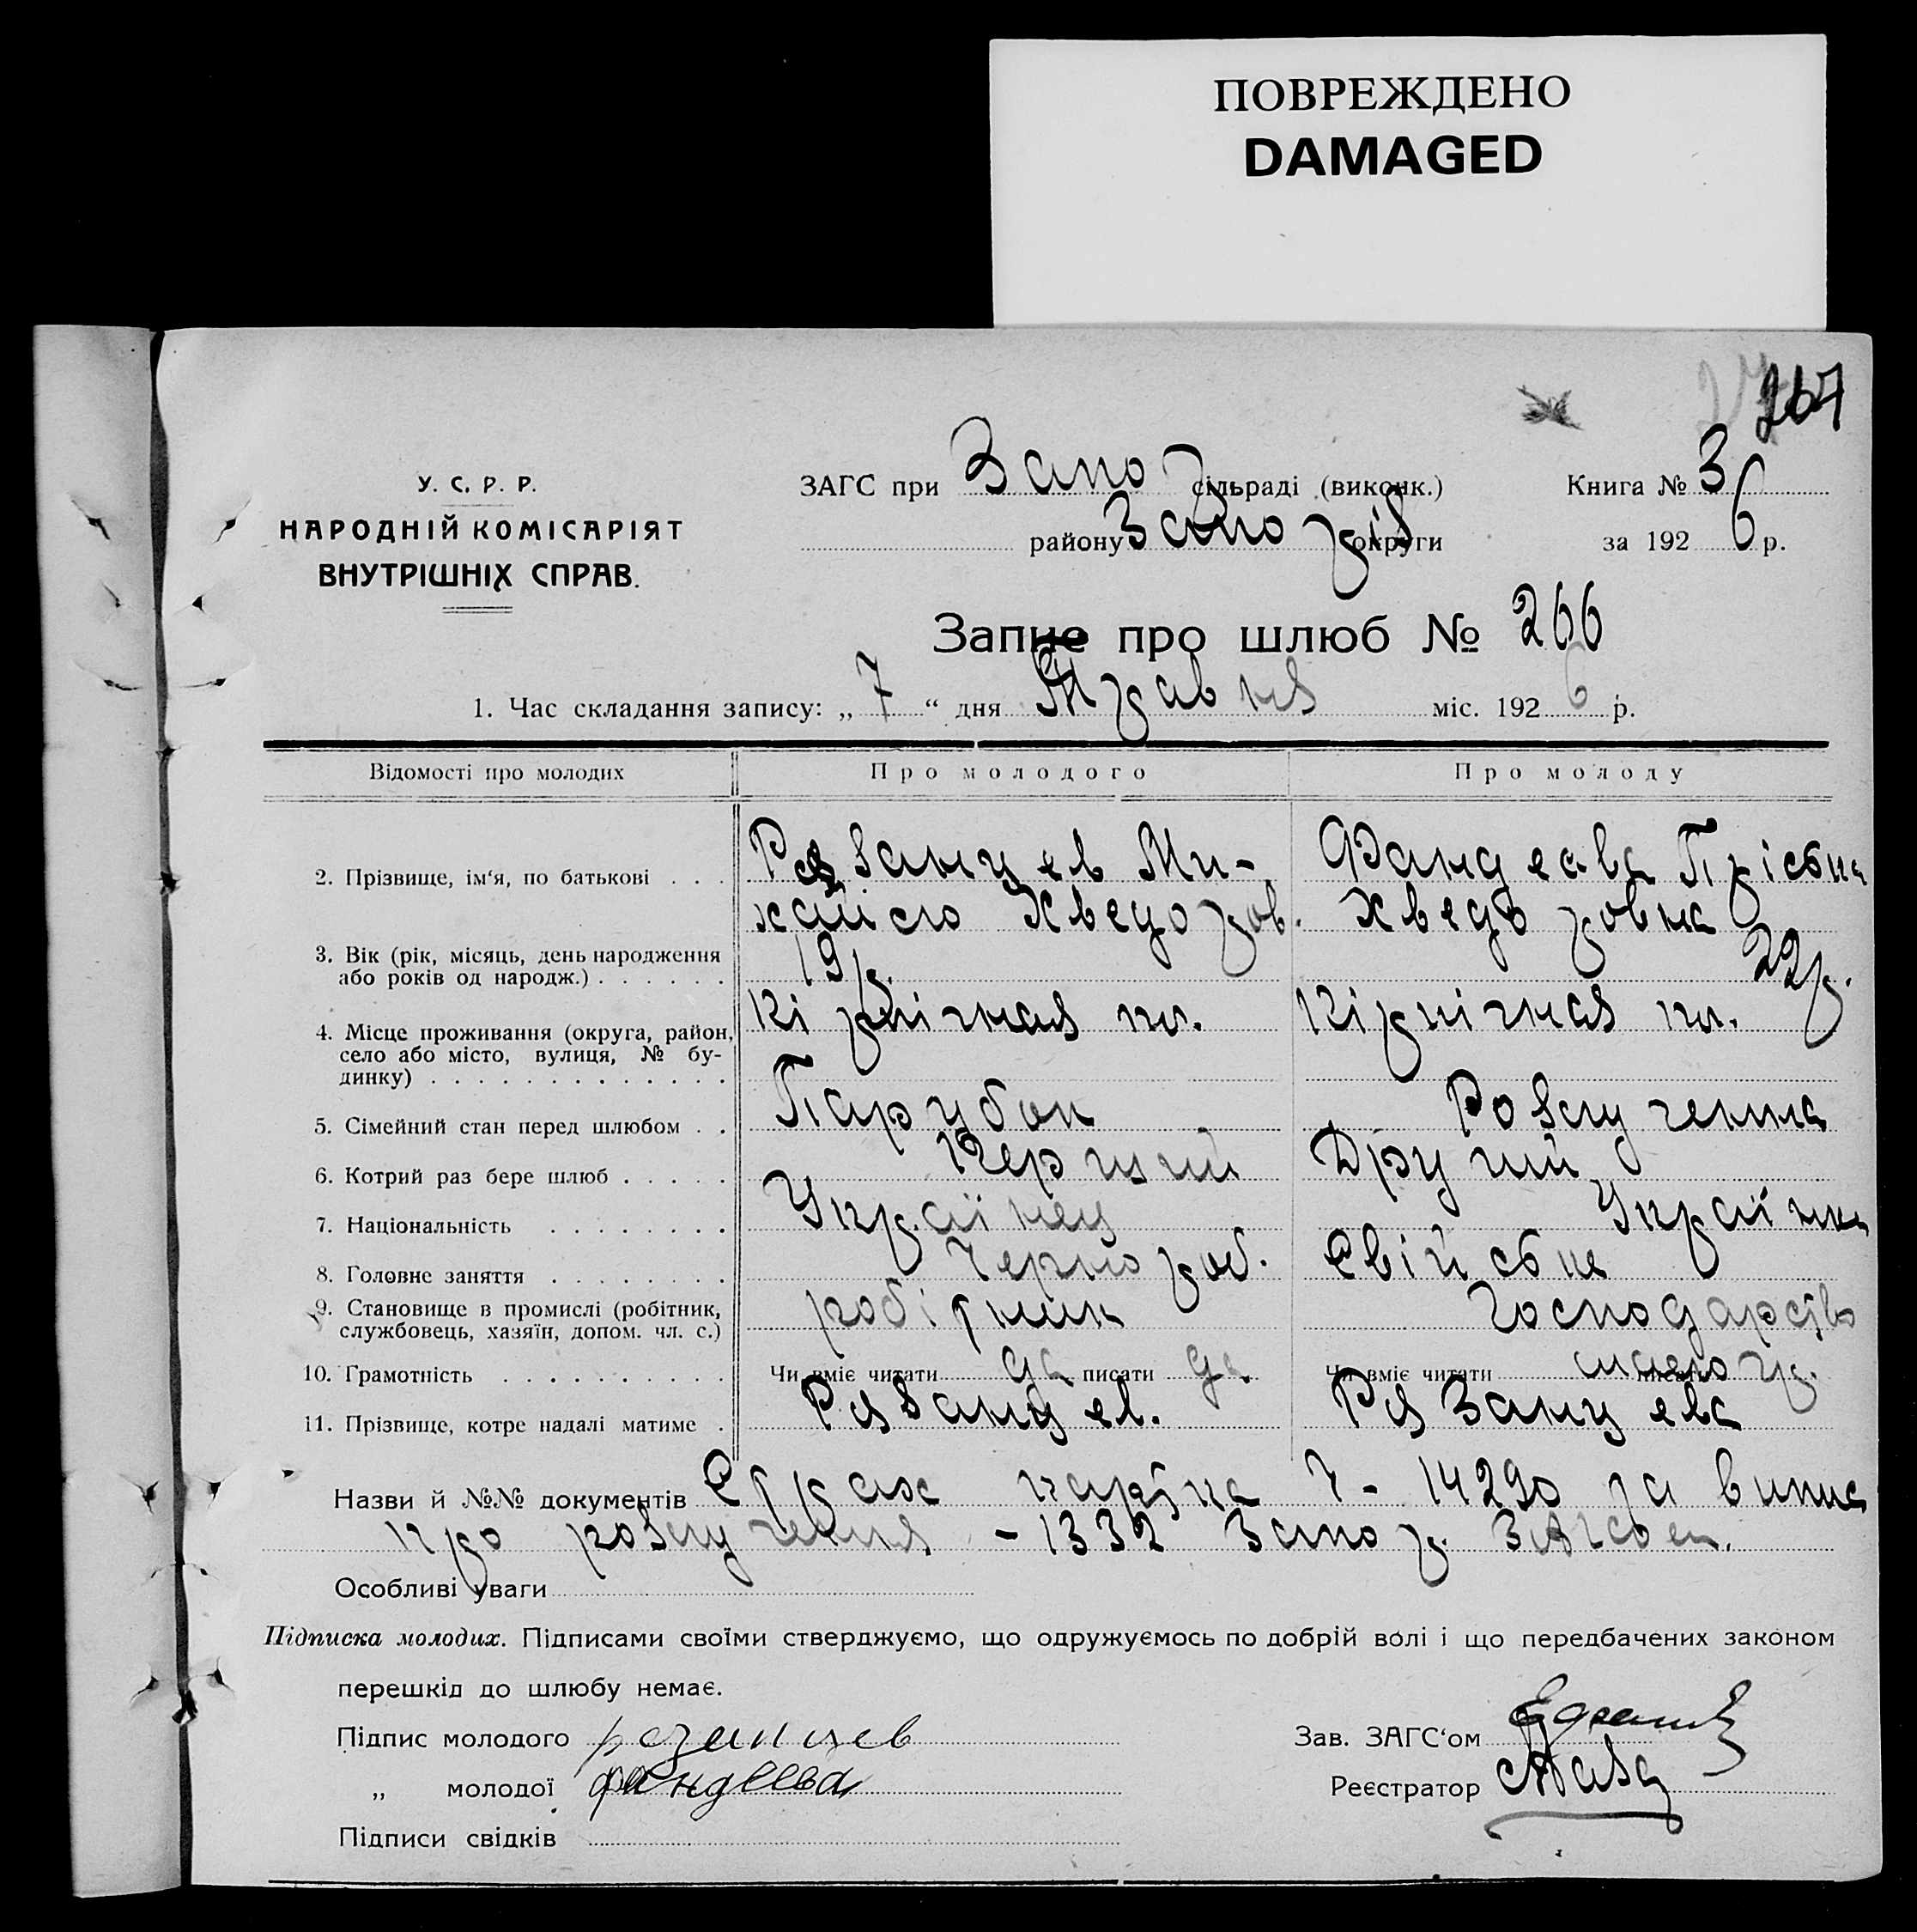 ПОВРЕЖДЕНО
DAMAGED
267
У. С. Р. Р.
НАРОДНІЙ КОМІСАРІЯТ
ВНУТРІШНІХ СПРАВ.
ЗАГС при Запор сільраді (виконк.) Книга № 3
району Запоріз округи за 1926 р.
Запис про шлюб № 266
1. Час складання запису: „ 7 “ дня Травня міс. 1926 р.
Відомості про молодих Про молодого Про молоду
2. Прізвище, ім'я, по батькові . . . Рязанцев Ми- Фандеева
хайло Хведоров. Хведоровна
3. Вік (рік, місяць, день народження
або років од народж.) . . . . . . 19 р. 22 р.
4. Місце проживання (округа, район,
село або місто, вулиця, № бу-
динку) . . . . . . . . . . . . . Кірпічная пл. Кірпічная пл.
5. Сімейний стан перед шлюбом . . Парубок Розлученна
6. Котрий раз бере шлюб . . . . . Перший Другий
7. Національність . . . . . . . . Українец Українка
8. Головне заняття . . . . . . . . Чернороб. Свійське
9. Становище в промислі (робітник,
службовець, хазяїн, допом. чл. с.) робітник господарство
10. Грамотність . . . . . . . . . . Чи вміє читати да писати да Чи вміє читати писати мало гр.
11. Прізвище, котре надалі матиме . Рязанцев. Рязанцева
Назви й №№ документів Страх картка Ч- 14290 та випис
про розлучення - 1332 Запор. ЗАГСом.
Особливі уваги
Підписка молодих. Підписами своїми стверджуємо, що одружуємось по добрій волі і що передбачених законом
перешкід до шлюбу немає.
Підпис молодого резанцев Зав. ЗАГС'ом
„ молодої фандеева Реєстратор
Підписи свідків